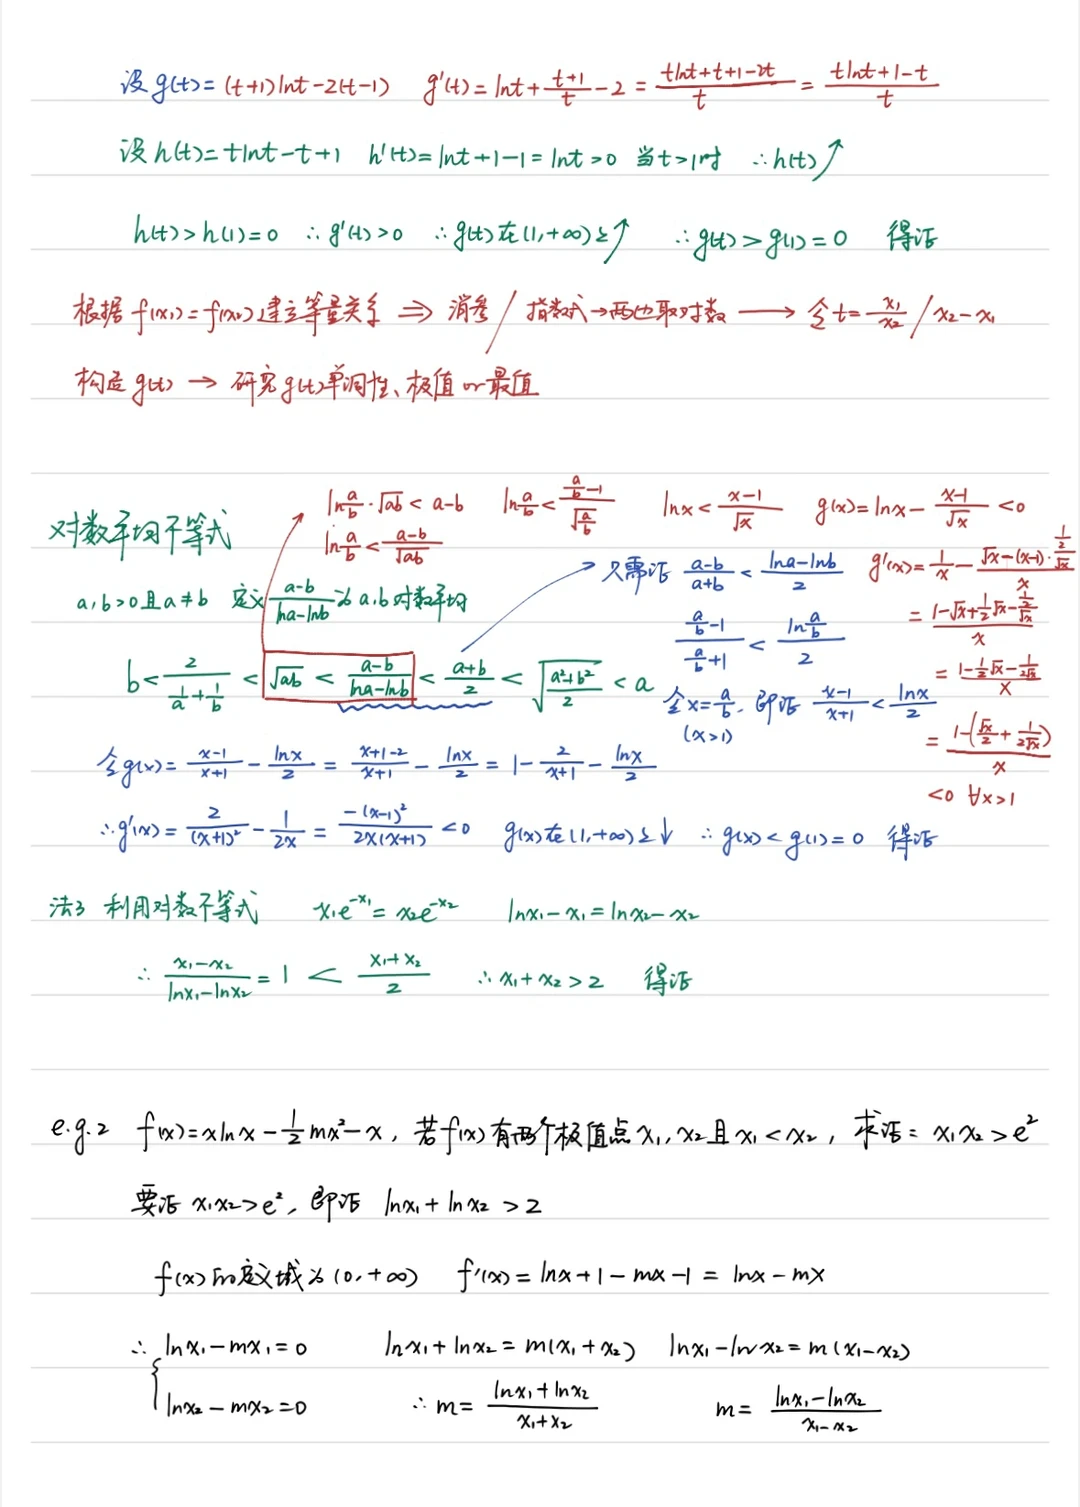 设 g(t) = (t+1)lnt-2(t-1)  g'(t) = lnt + \frac{t+1}{t} - 2 = \frac{tlnt+t+1-2t}{t} = \frac{tlnt+1-t}{t}
设 h(t) = tlnt-t+1  h'(t) = lnt+1-1 = lnt > 0 当 t>1时 ∴h(t)↗
h(t) > h(1) = 0 ∴g'(t) > 0 ∴g(t) 在(1,+∞)上↗ ∴g(t) > g(1) = 0 得证
根据 f(x₁) = f(x₂) 建立等量关系 ⇒ 消参 / 指数式→两边取对数 → 令 t = \frac{x₁}{x₂} / x₂-x₁
构造 g(t) → 研究 g(t) 单调性、极值 or 最值
对数平均不等式
ln\frac{a}{b}·√ab < a-b  ln\frac{a}{b} < \frac{\frac{a}{b}-1}{\sqrt{\frac{a}{b}}}  lnx < \frac{x-1}{√x}  g(x) = lnx - \frac{x-1}{√x} < 0
ln\frac{a}{b} < \frac{a-b}{√ab}
a,b>0且a≠b 定义 \frac{a-b}{lna-lnb} 为 a,b 对数平均
只需证 \frac{a-b}{a+b} < \frac{lna-lnb}{2}
g'(x) = \frac{1}{x} - \frac{√x-(x-1)·\frac{\frac{1}{2}}{√x}}{x}
\frac{\frac{a}{b}-1}{\frac{a}{b}+1} < \frac{ln\frac{a}{b}}{2}
= \frac{1-√x+\frac{1}{2}√x-\frac{\frac{1}{2}}{√x}}{x}
b < \frac{2}{\frac{1}{a}+\frac{1}{b}} < √ab < \frac{a-b}{lna-lnb} < \frac{a+b}{2} < \sqrt{\frac{a²+b²}{2}} < a
令 x = \frac{a}{b}, 即证 \frac{x-1}{x+1} < \frac{lnx}{2}
(x>1)
= \frac{1-\frac{1}{2}√x-\frac{1}{2√x}}{x}
= \frac{1-(\frac{√x}{2}+\frac{1}{2√x})}{x}
<0 ∀x>1
令 g(x) = \frac{x-1}{x+1} - \frac{lnx}{2} = \frac{x+1-2}{x+1} - \frac{lnx}{2} = 1 - \frac{2}{x+1} - \frac{lnx}{2}
∴g'(x) = \frac{2}{(x+1)²} - \frac{1}{2x} = \frac{-(x-1)²}{2x(x+1)} < 0  g(x) 在(1,+∞)上↓ ∴g(x) < g(1) = 0 得证
法3 利用对数不等式  x₁e^{-x₁} = x₂e^{-x₂}  lnx₁-x₁ = lnx₂-x₂
∴ \frac{x₁-x₂}{lnx₁-lnx₂} = 1 < \frac{x₁+x₂}{2} ∴x₁+x₂ > 2 得证
e.g.2 f(x) = xlnx - \frac{1}{2}mx² - x, 若 f(x) 有两个极值点 x₁, x₂ 且 x₁ < x₂, 求证: x₁x₂ > e²
要证 x₁x₂ > e², 即证 lnx₁ + lnx₂ > 2
f(x) 的定义域为 (0,+∞)  f'(x) = lnx+1-mx-1 = lnx-mx
∴ { lnx₁-mx₁ = 0  lnx₁+lnx₂ = m(x₁+x₂)  lnx₁-lnx₂ = m(x₁-x₂)
lnx₂-mx₂ = 0  ∴m = \frac{lnx₁+lnx₂}{x₁+x₂}  m = \frac{lnx₁-lnx₂}{x₁-x₂}